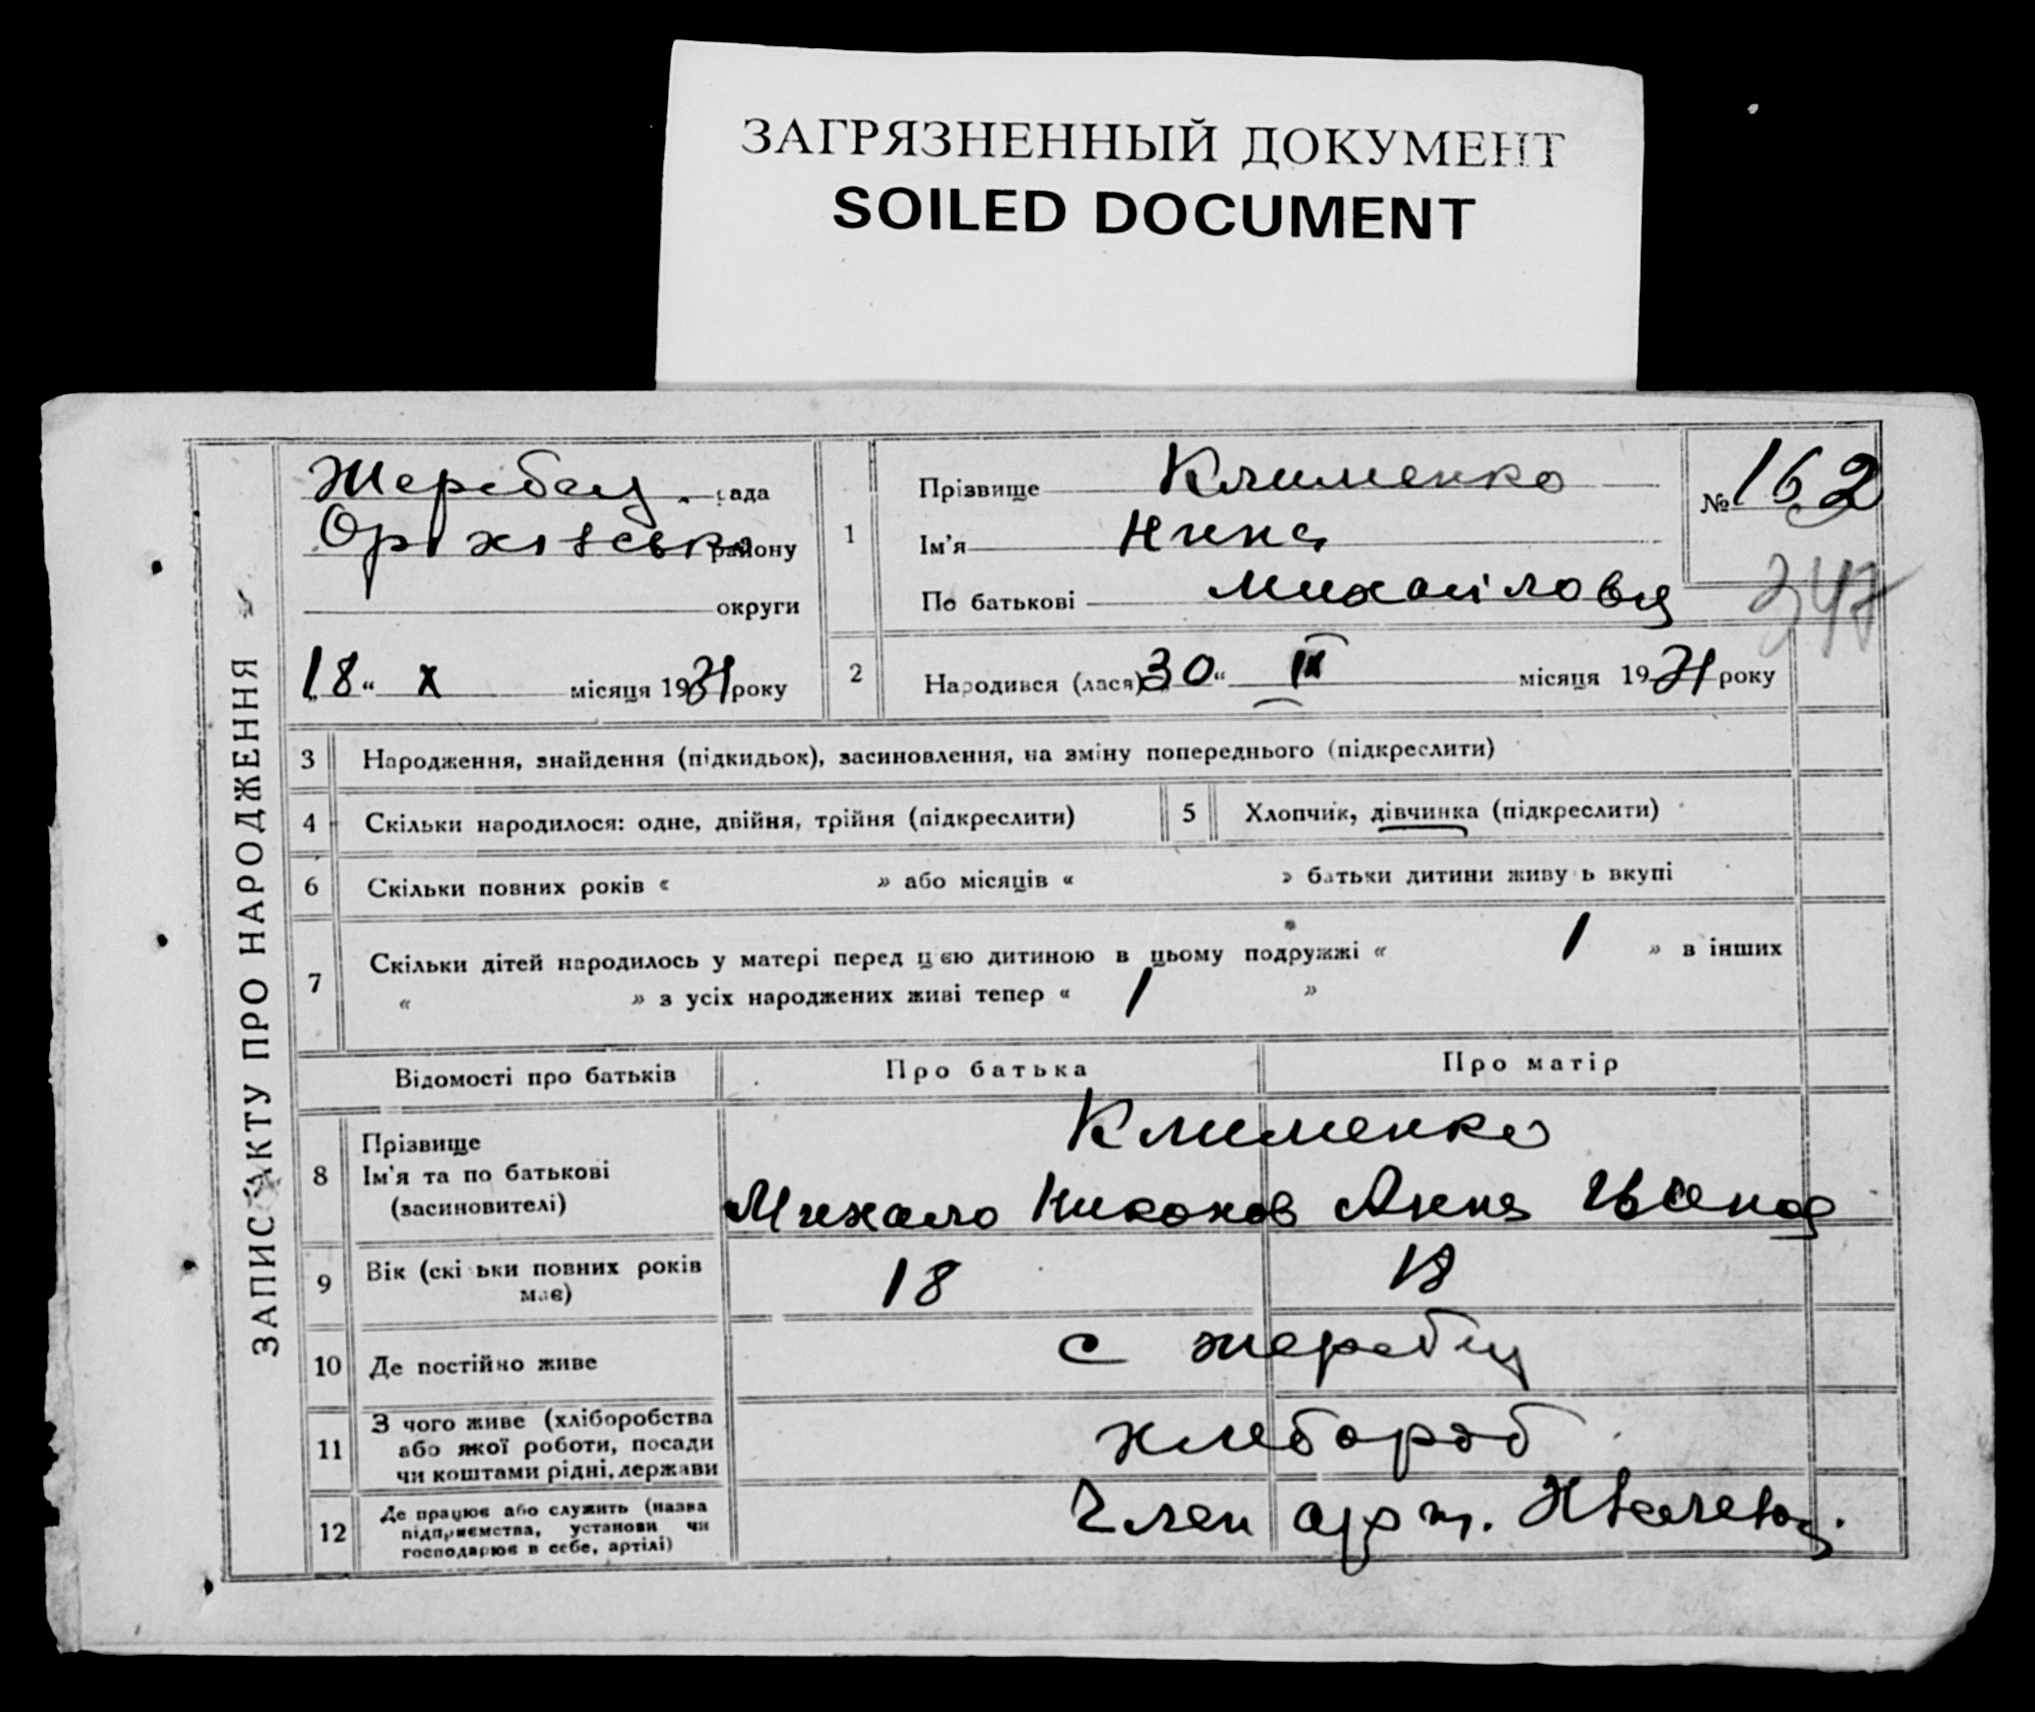 ЗАГРЯЗНЕННЫЙ ДОКУМЕНТ
SOILED DOCUMENT
ЗАПИС АКТУ ПРО НАРОДЖЕННЯ
Жеребец. рада
Оріхівськ району
округи
„18“ X місяця 1931 року
1
Прізвище Клименко
Ім'я Нина
По батькові Михайловна
№ 162
347
2 Народився (лася) 30 “ IX місяця 1931 року
3 Народження, знайдення (підкидьок), засиновлення, на зміну попереднього (підкреслити)
4 Скільки народилося: одне, двійня, трійня (підкреслити) 5 Хлопчик, дівчинка (підкреслити)
6 Скільки повних років « » або місяців « » батьки дитини живуть вкупі
7 Скільки дітей народилось у матері перед цією дитиною в цьому подружжі « 1 » в інших
« » з усіх народжених живі тепер « 1 »
Відомості про батьків Про батька Про матір
8 Прізвище Клименко
Ім'я та по батькові
(засиновителі) Михайло Никонов Анна Иванов
9 Вік (скільки повних років
має) 18 18
10 Де постійно живе с жеребец
11 З чого живе (хліборобства
або якої роботи, посади
чи коштами рідні, держави хлебороб
12 Де працює або служить (назва
підприємства, установи чи
господарює в себе, артілі) Член арт.